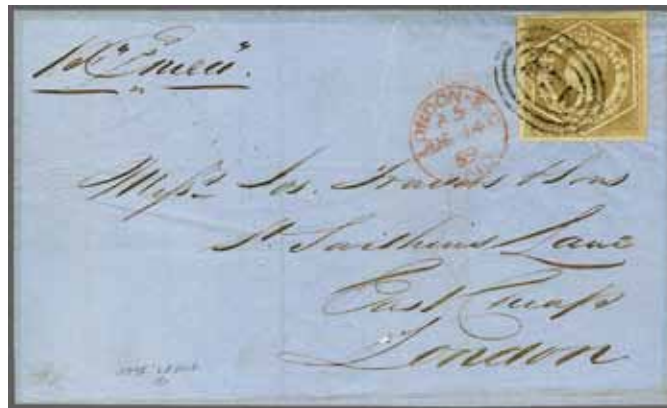 p "Emeu".
LONDON E.C
A 5
14
59
PAID
Messrs Jos. Travers & Sons
St Swithins Lane
East Cheap
London